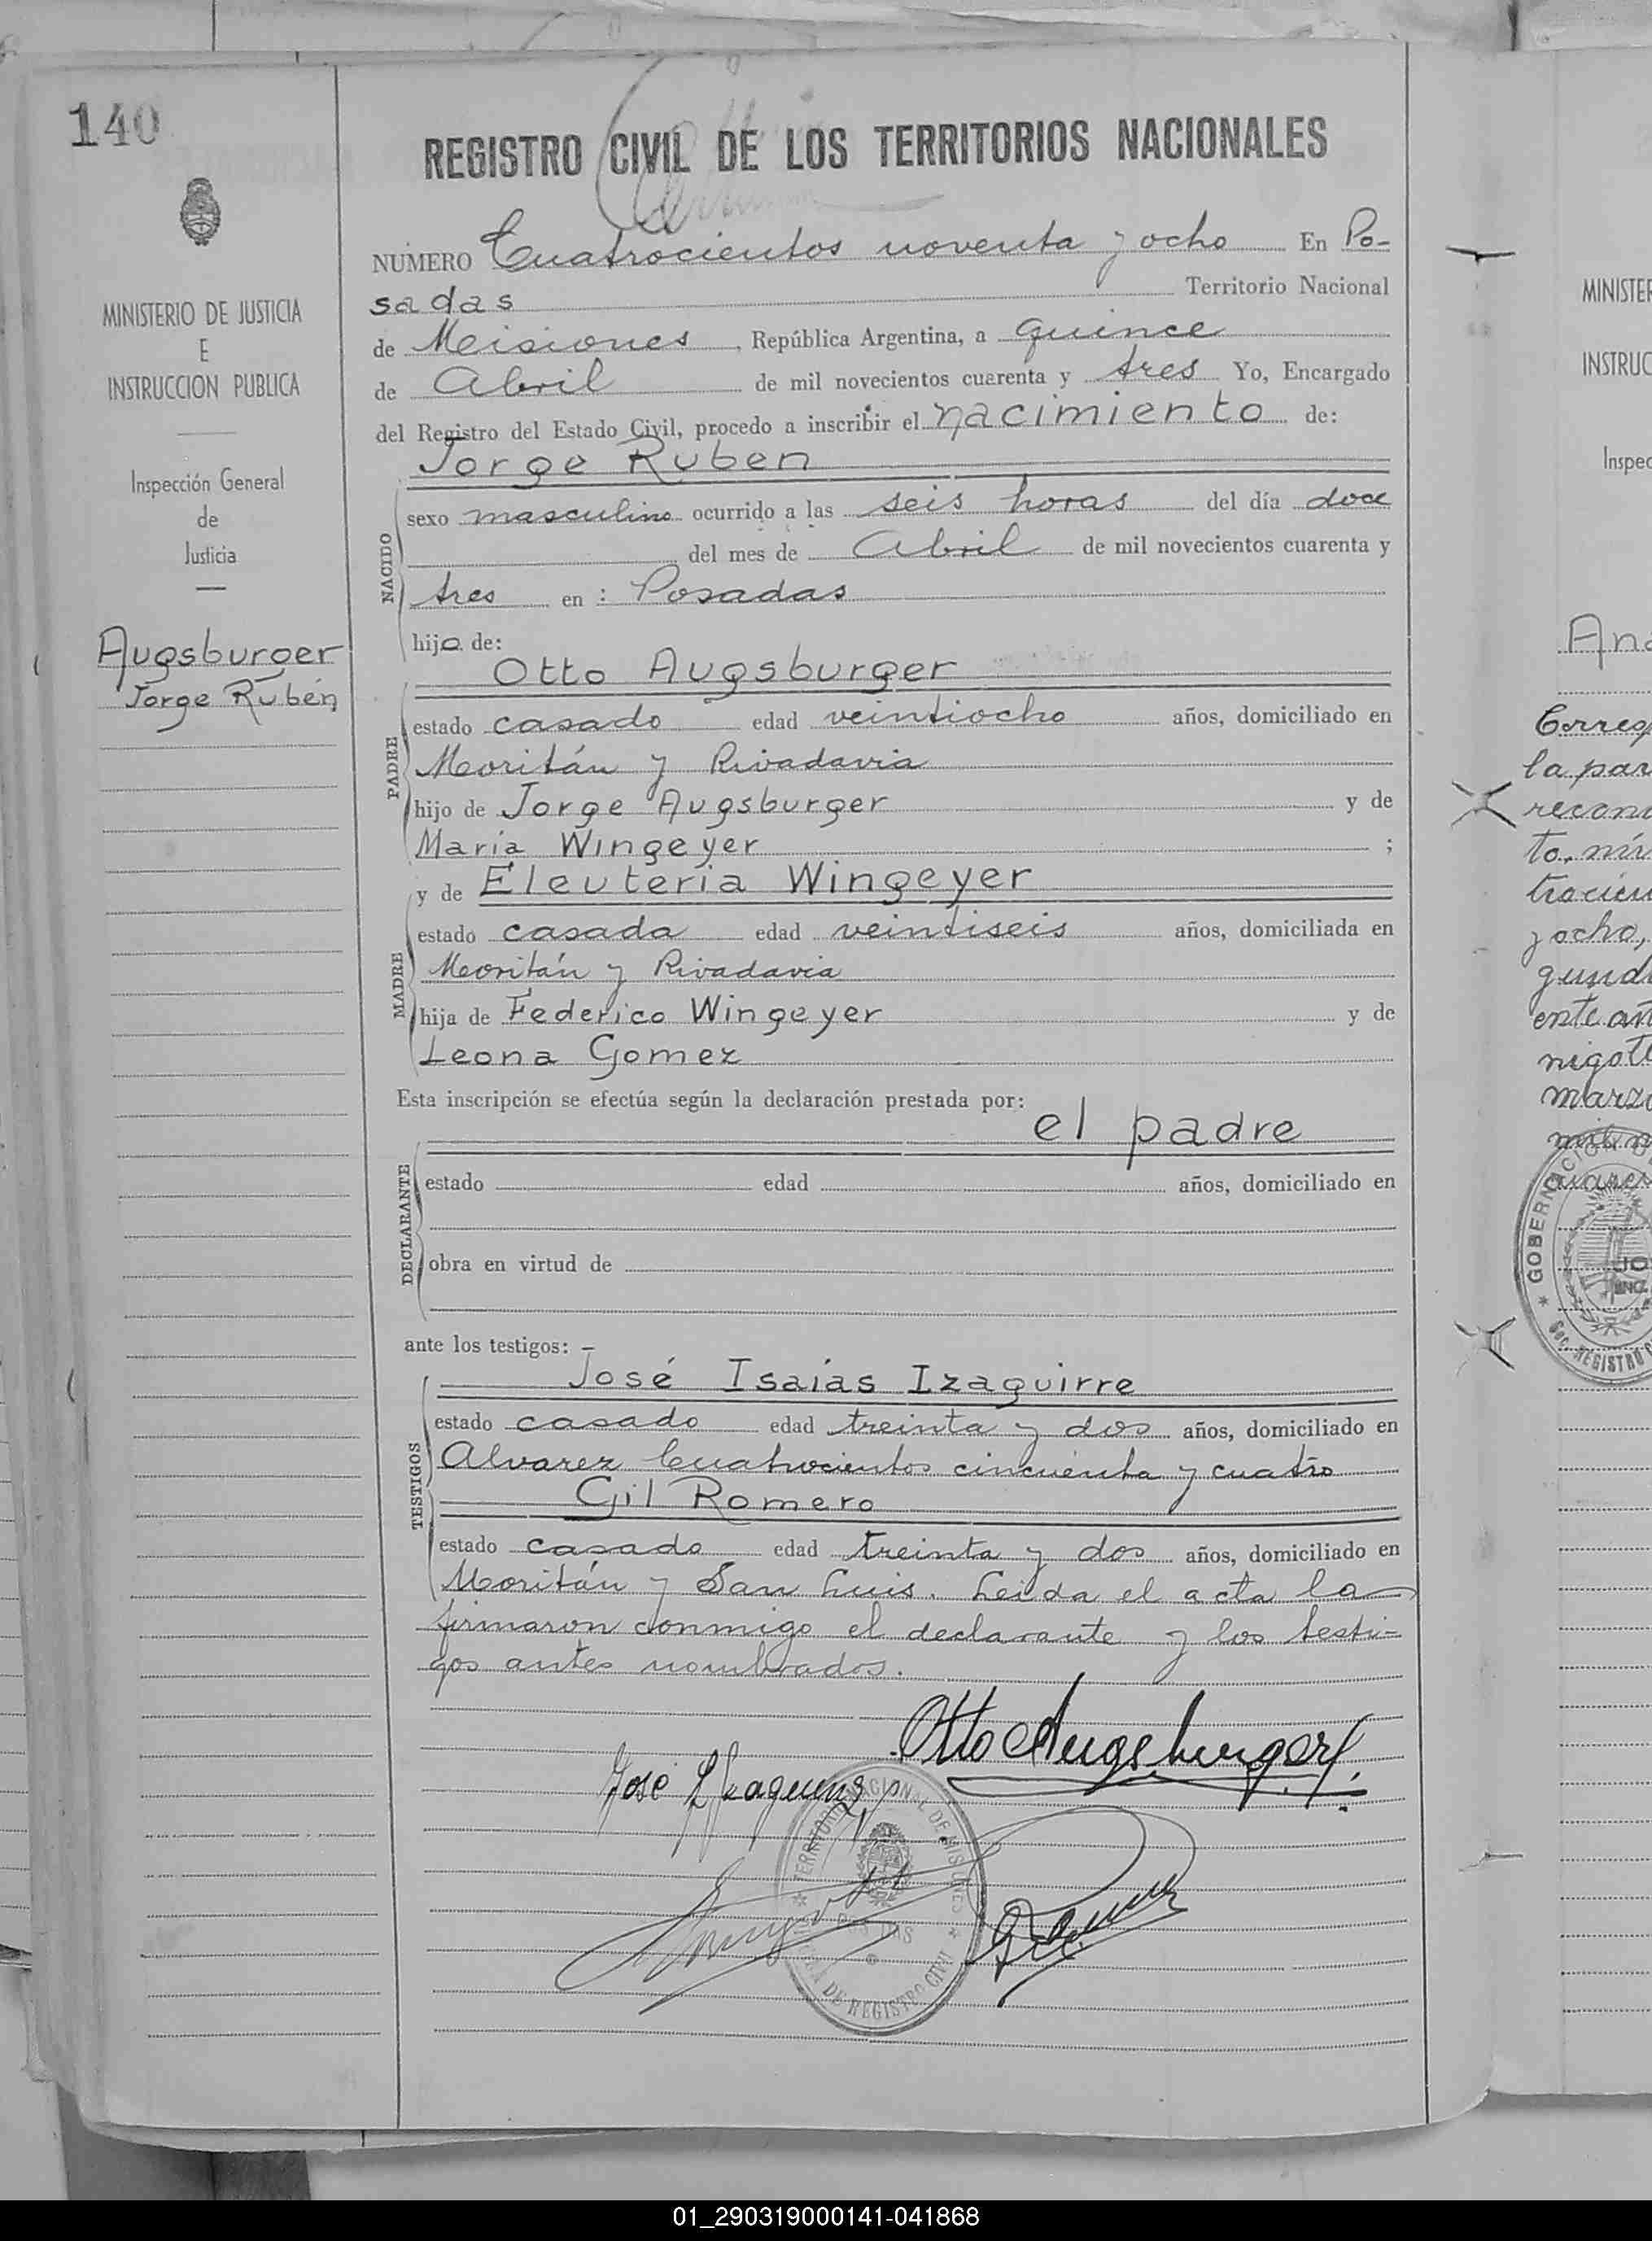 140
REGISTRO CIVIL DE LOS TERRITORIOS NACIONALES
MINISTERIO DE JUSTICIA
E
INSTRUCCION PUBLICA
Inspección General
de
Justicia
Augsburger
Jorge Rubén
NÚMERO Cuatrocientos noventa y ocho En Po-
sadas Territorio Nacional
de Misiones, República Argentina, a quince
de Abril de mil novecientos cuarenta y tres Yo, Encargado
del Registro del Estado Civil, procedo a inscribir el nacimiento de:
Jorge Ruben
NACIDO
sexo masculino ocurrido a las seis horas del día doce
del mes de Abril de mil novecientos cuarenta y
tres en : Posadas
hijo de:
Otto Augsburger
PADRE
estado casado edad veintiocho años, domiciliado en
Moritán y Rivadavia
hijo de Jorge Augsburger y de
María Wingeyer ;
y de Eleuteria Wingeyer
MADRE
estado casada edad veintiseis años, domiciliada en
Moritán y Rivadavia
hija de Federico Wingeyer y de
Leona Gomez
Esta inscripción se efectúa según la declaración prestada por:
el padre
DECLARANTE
estado edad años, domiciliado en
obra en virtud de
ante los testigos:
José Isaías Izaguirre
TESTIGOS
estado casado edad treinta y dos años, domiciliado en
Alvarez Cuatrocientos cincuenta y cuatro
Gil Romero
estado casado edad treinta y dos años, domiciliado en
Moritán y San Luis. Leida el acta la
firmaron conmigo el declarante y los testi-
gos antes nombrados.
Otto Augsburger
José I. Izaguirre
TERRITORIO NACIONAL DE MISIONES
POSADAS
DE REGISTRO CIVIL
MINISTER
INSTRUC
Inspec
la par
y ocho,
GOBERNACION
REGISTRO
01_290319000141-041868